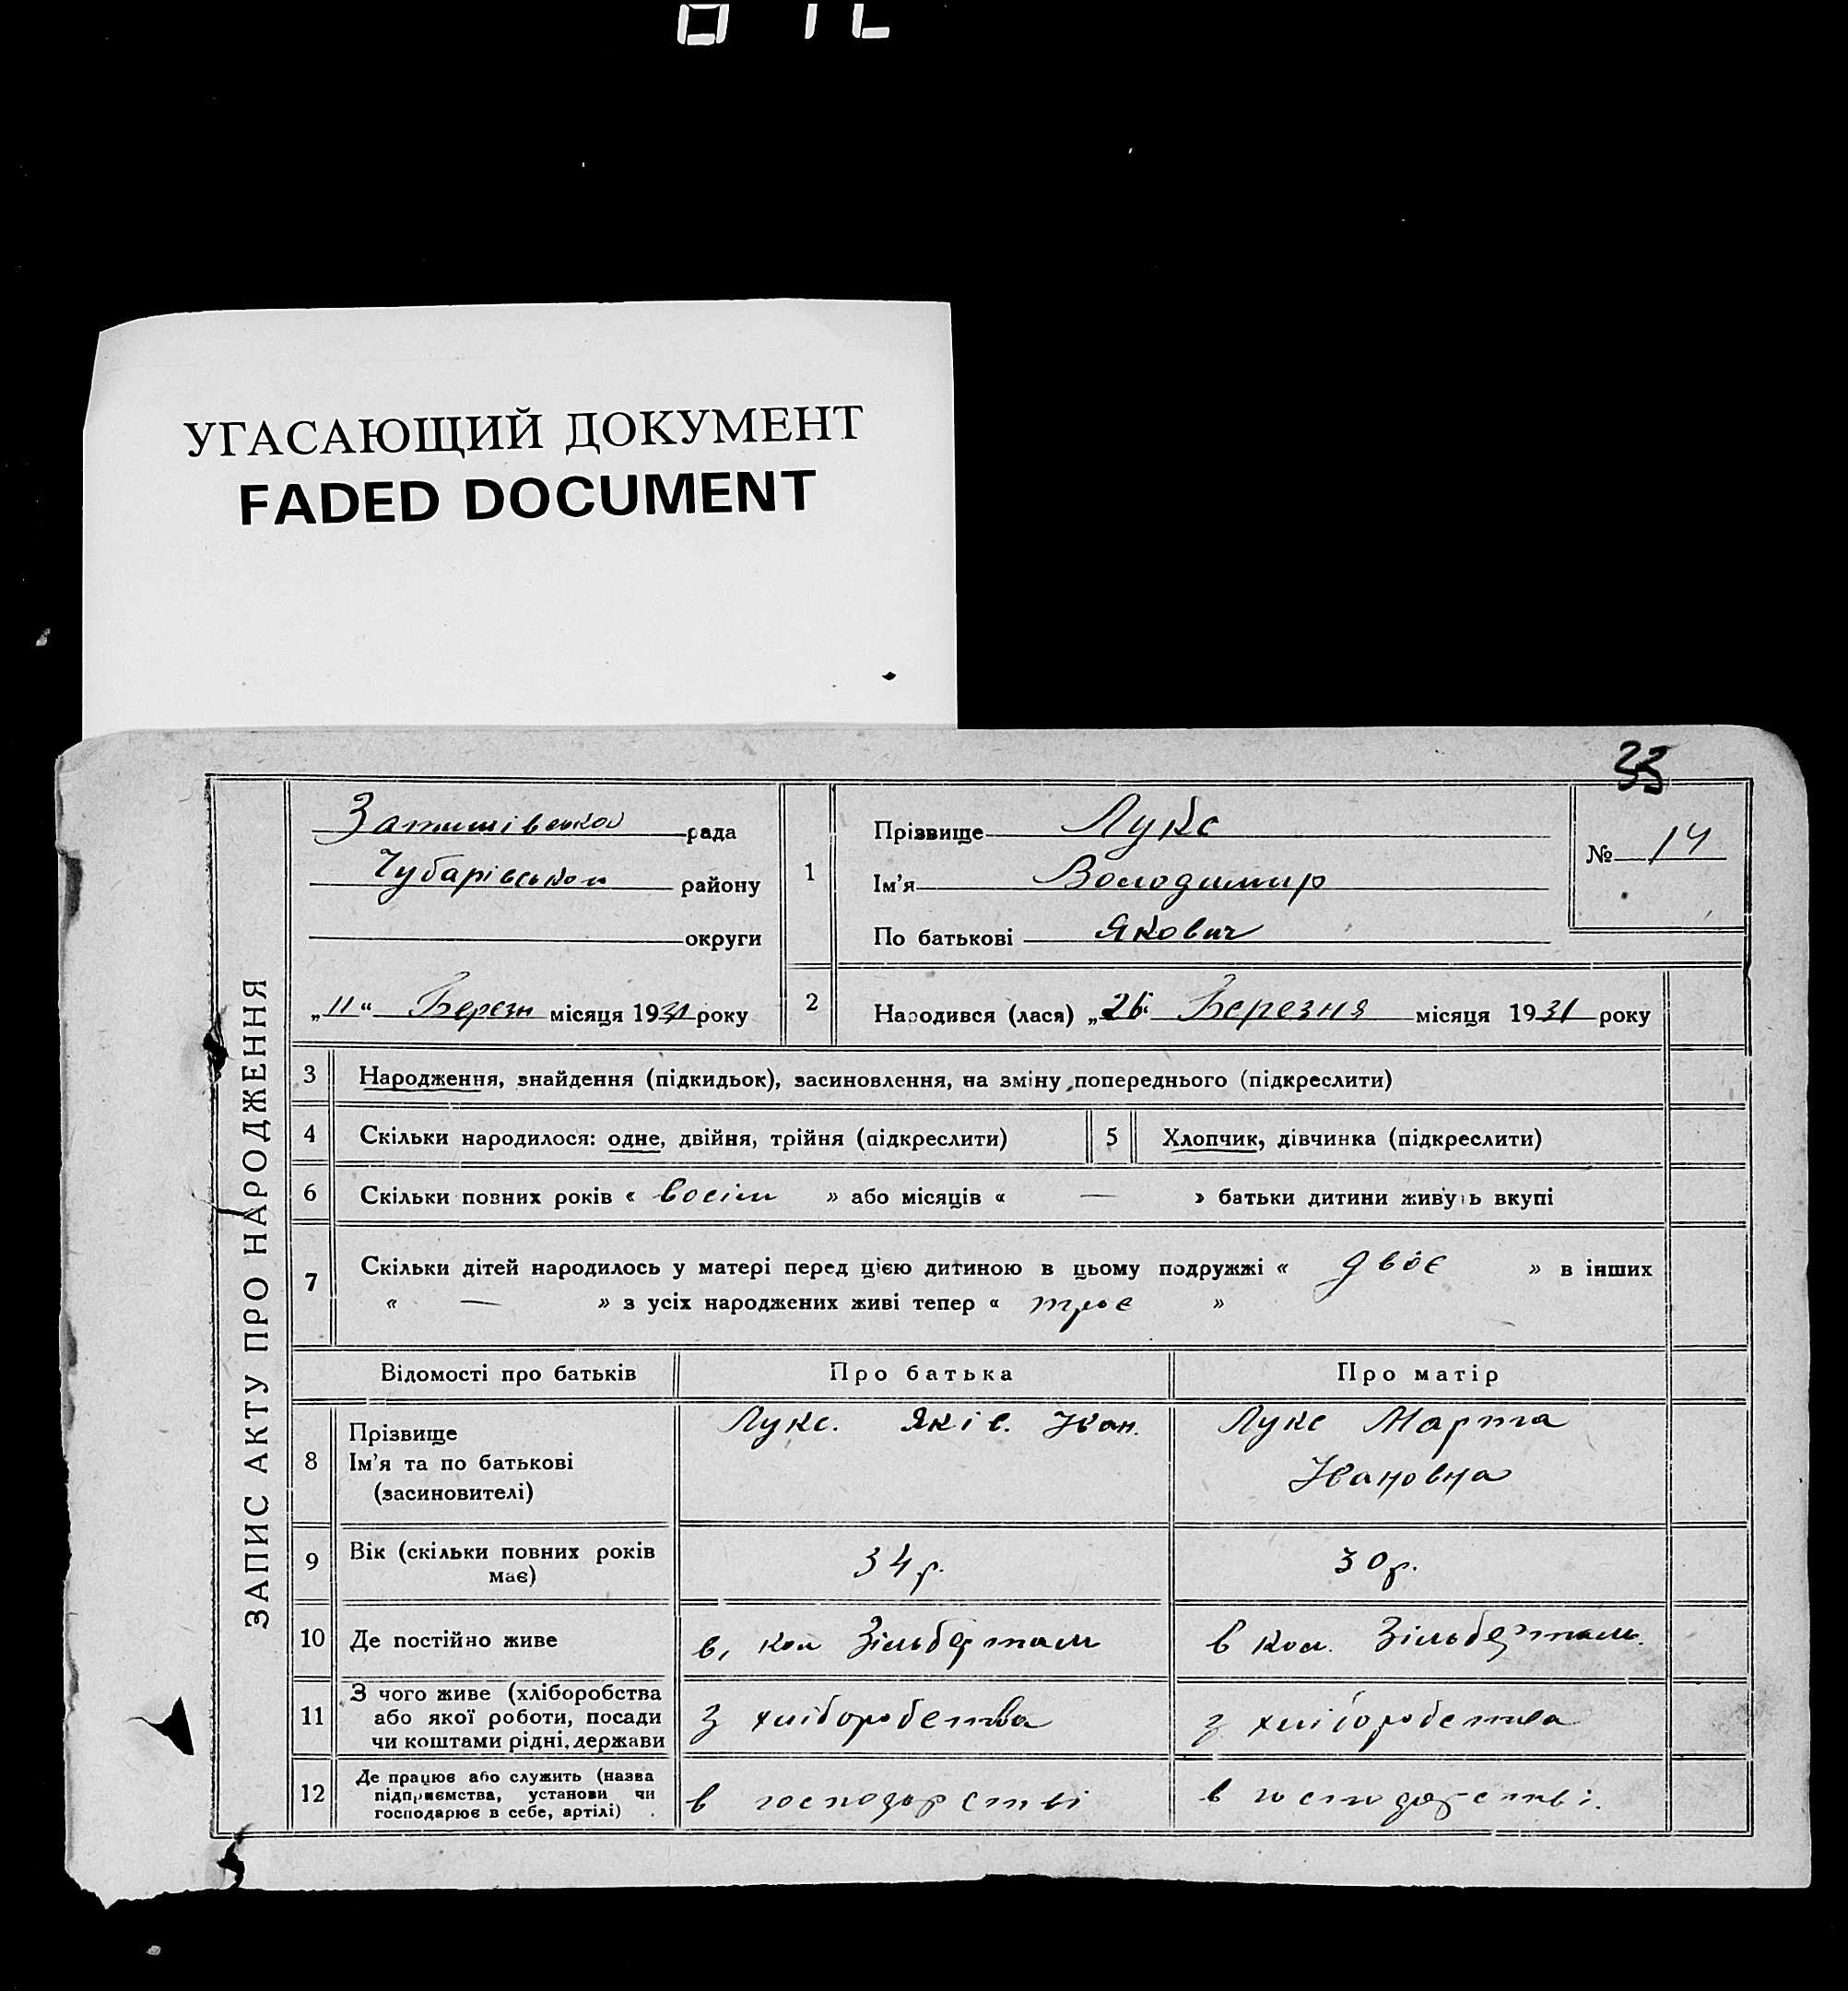 УГАСАЮЩИЙ ДОКУМЕНТ
FADED DOCUMENT
33
ЗАПИС АКТУ ПРО НАРОДЖЕННЯ
Затишівська рада
Чубарівського району
округи
„11“ Березн місяця 1931 року
1
Прізвище Лукс
Ім'я Володимир
По батькові Якович
№ 14
2 Народився (лася) „26“ Березня місяця 1931 року
3 Народження, знайдення (підкидьок), засиновлення, на зміну попереднього (підкреслити)
4 Скільки народилося: одне, двійня, трійня (підкреслити) 5 Хлопчик, дівчинка (підкреслити)
6 Скільки повних років « восім » або місяців « — » батьки дитини живуть вкупі
7 Скільки дітей народилось у матері перед цією дитиною в цьому подружжі « двоє » в інших
« — » з усіх народжених живі тепер « троє »
Відомості про батьків Про батька Про матір
8 Прізвище
Ім'я та по батькові
(засиновителі)
Лукс. Яків. Іван.
Лукс Марта
Івановна
9 Вік (скільки повних років
має)
34 р. 30 р.
10 Де постійно живе в, кол Зільберталь в кол. Зільберталь.
11 З чого живе (хліборобства
або якої роботи, посади
чи коштами рідні, держави
з хліборобства з хліборобства
12 Де працює або служить (назва
підприємства, установи чи
господарює в себе, артілі)
в господарстві в господарстві.